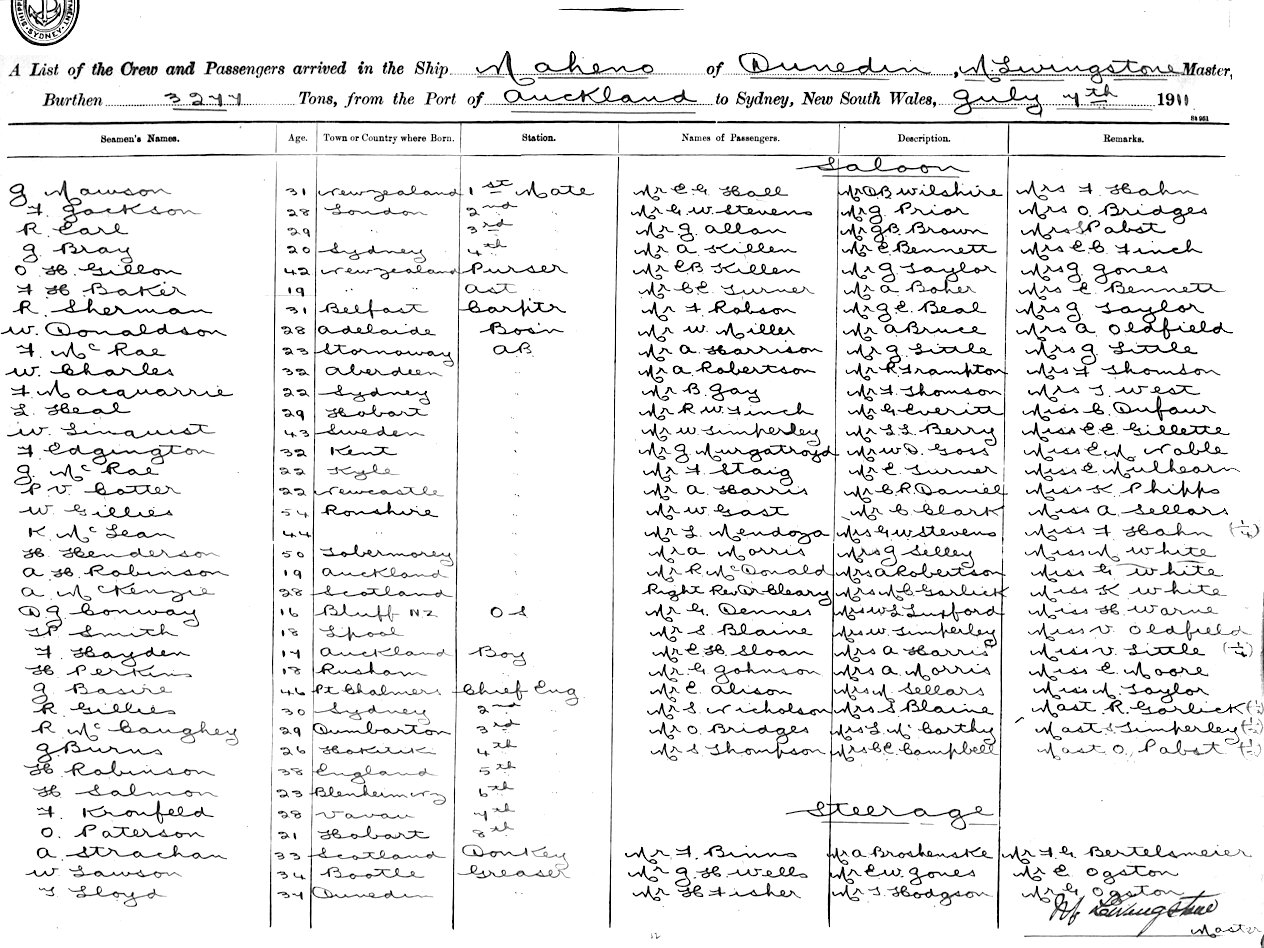 SYDNEY
A List of the Crew and Passengers arrived in the Ship Maheno of Dunedin, M Livingstone Master,
Burthen 3277 Tons, from the Port of Auckland to Sydney, New South Wales, July 7th 1911
Seamen's Names. Age. Town or Country where Born. Station. Names of Passengers. Description. Remarks.
Saloon
G Mawson 31 New zealand 1st Mate Mr E G Hall Mr D B Wilshire Mrs F Hahn
F. Jackson 28 London 2nd " Mr G W Stevens Mr J Prior Mrs O. Bridges
R Earl 29 " 3rd " Mr J Allan Mr J B. Brown Mrs S Pabst
G Bray 20 Sydney 4th " Mr A Killen Mr E Bennett Mrs E C Finch
O H Gillon 42 New zealand Purser Mr E B Killen Mr J Taylor Mrs J Jones
F H Baker 19 " " Ast " Mr C E Turner Mr A Baher Mrs E Bennett
R. Sherman 31 Belfast Carptr Mr F Robson Mr J E. Beal Mrs J Taylor
W. Donaldson 28 Adelaide Bosn Mr W Miller Mr A Bruce Mrs A Oldfield
F. McRae 23 Stornoway AB Mr A Harrison Mr J Little Mrs J Little
W. Charles 32 Aberdeen " Mr A Robertson Mr R Frampton Mrs F Thomson
F Macquarrie 22 Sydney " Mr B Gay Mr F Thomson Mrs T West
L Heal 29 Hobart " Mr R W Finch Mr G Everitt Miss C. Dufaur
W. Linquist 43 Sweden " Mr W Timperley Mr L L Berry Miss E E Gillette
F Edgington 32 Kent " Mr J Murgatroyd Mr W D. Goss Miss E M Nable
G McRae 22 Kyle " Mr F Staig Mr E Turner Miss E Mulhearn
P V Cotter 22 Newcastle " Mr A Harris Mr C R Daniel Miss K Phipps
W Gillies 54 Ronshire " Mr W Gast Mr C Clark Miss A Sellars
K McLean 44 " " Mr L Mendoza Mrs G W Stevens Miss F Hahn (1/4)
H Henderson 50 Tobermorey " Mr A Morris Mrs J Selley Miss M White
A H Robinson 19 Auckland " Mr R McDonald Mrs A Robertson Miss G White
A McKenzie 28 Scotland " Right Rev Dr Cleary Mrs M C Garlick Miss K White
D J Conway 16 Bluff NZ O S Mr G Dennes Mrs W L Luxford Miss H Warne
T P Smith 18 Lpool " Mr S Blaine Mrs W Timperley Miss V Oldfield
F Hayden 17 Auckland Boy Mr E H Sloan Mrs A Harris Miss V. Little (1/4)
H Perkins 18 Rusham " Mr G Johnson Mrs A Morris Miss E Moore
G Basire 46 Pt Chalmers Chief Eng. Mr E Alison Mrs M Sellars Miss M Taylor
R Gillies 30 Sydney 2nd " Mr S Nicholson Mrs S Blaine Mast R. Garlick (1/2)
R McCaughey 29 Dumbarton 3rd " Mr O Bridges Mrs L McCarthy Mast S Timperley (1/2)
G Burns 26 Hokitika 4th " Mr S Thompson Mrs C E Campbell Mast O. Pabst (1/2)
H Robinson 38 England 5th "
H Salmon 23 Blenheim NZ 6th "
F Kronfeld 28 Vavau 7th "
Steerage
O. Paterson 21 Hobart 8th "
A. Strachan 33 Scotland Donkey Mr F. Binns Mr A Broshenske Mr F G Bertelsmeier
W Lawson 34 Bootle Greaser Mr J H Wells Mr E W Jones Mr E Ogston
T Lloyd 34 Dunedin " Mr H Fisher Mr T Hodgson Mr G Ogston
M Livingstone
Master